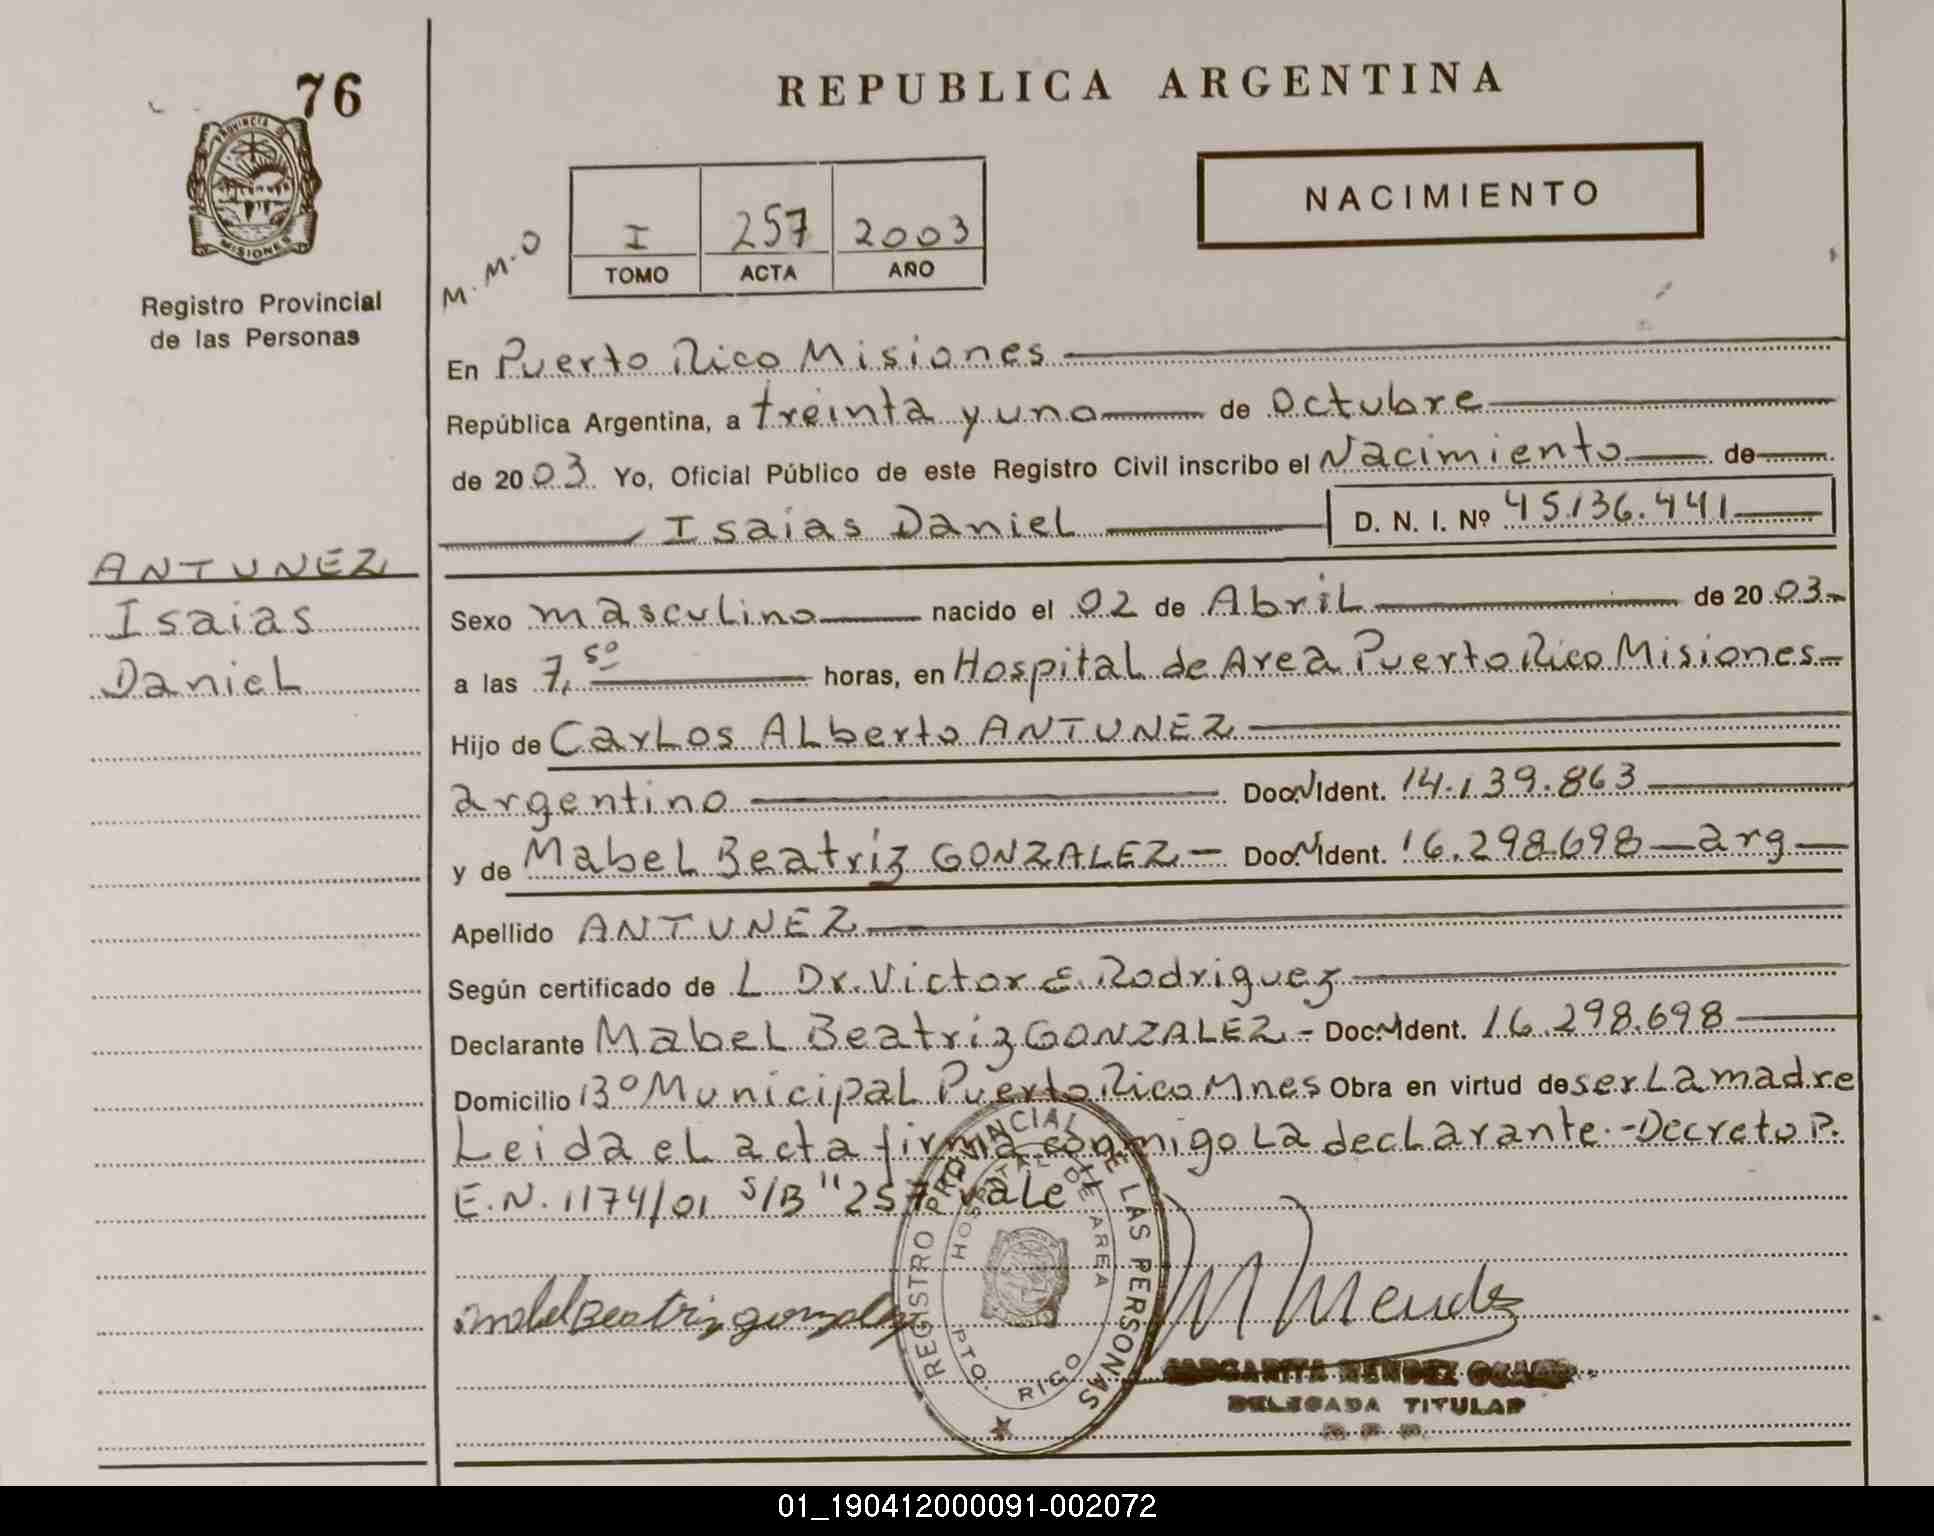 76
REPUBLICA ARGENTINA
PROVINCIA DE
MISIONES
Registro Provincial
de las Personas
NACIMIENTO
M.M.O
I 257 2003
TOMO ACTA AÑO
En Puerto Rico Misiones
República Argentina, a treinta y uno de octubre
de 2003 Yo, Oficial Público de este Registro Civil inscribo el Nacimiento de
Isaias Daniel D. N. I. Nº 45.136.441
ANTUNEZ
Isaias
Daniel
Sexo masculino nacido el 02 de Abril de 2003
a las 7,50 horas, en Hospital de Area Puerto Rico Misiones
Hijo de Carlos Alberto ANTUNEZ
argentino Doc.N Ident. 14.139.863
y de Mabel Beatriz GONZALEZ Doc.N Ident. 16.298.698 arg
Apellido ANTUNEZ
Según certificado de L Dr. Victor E. Rodriguez
Declarante Mabel Beatriz GONZALEZ Doc.N Ident. 16.298.698
Domicilio Bº Municipal Puerto Rico Mnes Obra en virtud de ser La madre
Leida el acta firma conmigo La declarante.-Decreto P.
E.N. 1174/01 S/B "257 vale"
REGISTRO PROVINCIAL DE LAS PERSONAS
HOSPITAL DE AREA
PTO. RICO
Mabel Beatriz gonzalez
M Mendez
MARGARITA MENDEZ
DELEGADA TITULAR
R P P
01_190412000091-002072